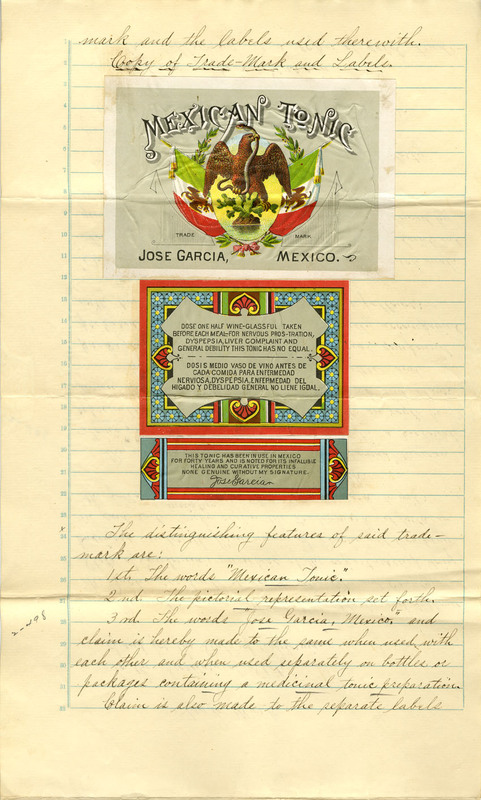 mark and the labels used therewith.
Copy of Trade-Mark and Labels.
MEXICAN TONIC
TRADE MARK
JOSE GARCIA, MEXICO.
DOSE ONE HALF WINE-GLASSFUL TAKEN
BEFORE EACH MEAL-FOR NERVOUS PROS-TRATION,
DYSPEPSIA, LIVER COMPLAINT AND
GENERAL DEBILITY THIS TONIC HAS NO EQUAL.
DOSIS MEDIO VASO DE VINO ANTES DE
CADA COMIDA PARA ENFERMEDAD
NERVIOSA, DYSPEPSIA, ENFERMEDAD DEL
HIGADO Y DEBELIDAD GENERAL NO LIENE IGDAL.
THIS TONIC HAS BEEN IN USE IN MEXICO
FOR FORTY YEARS AND IS NOTED FOR ITS INFALLIBLE
HEALING AND CURATIVE PROPERTIES
NONE GENUINE WITHOUT MY SIGNATURE.
Jose Garcia
The distinguishing features of said trade-
mark are:
1st. The words "Mexican Tonic".
2nd. The pictorial representation set forth.
3rd. The words "Jose Garcia, Mexico." and
claim is hereby made to the same when used with
each other and when used separately on bottles or
packages containing a medicinal tonic preparation.
Claim is also made to the separate labels